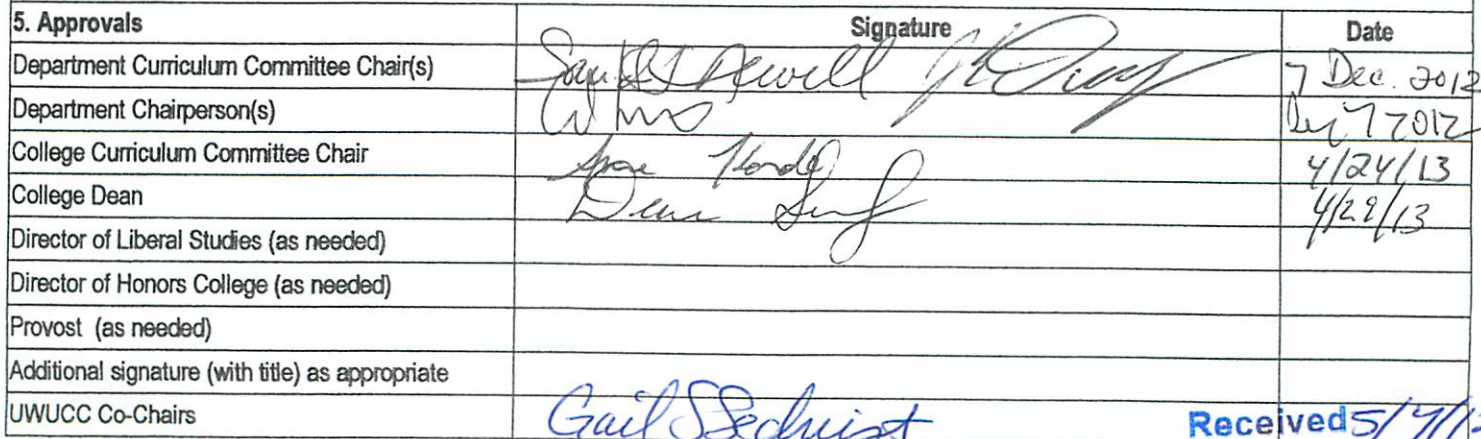 5. Approvals Signature Date
Department Curriculum Committee Chair(s) Newell 7 Dec. 2012
Department Chairperson(s) 7 2012
College Curriculum Committee Chair 4/24/13
College Dean 4/29/13
Director of Liberal Studies (as needed)
Director of Honors College (as needed)
Provost (as needed)
Additional signature (with title) as appropriate
UWUCC Co-Chairs Gail S Sechrist Received 5/7/1